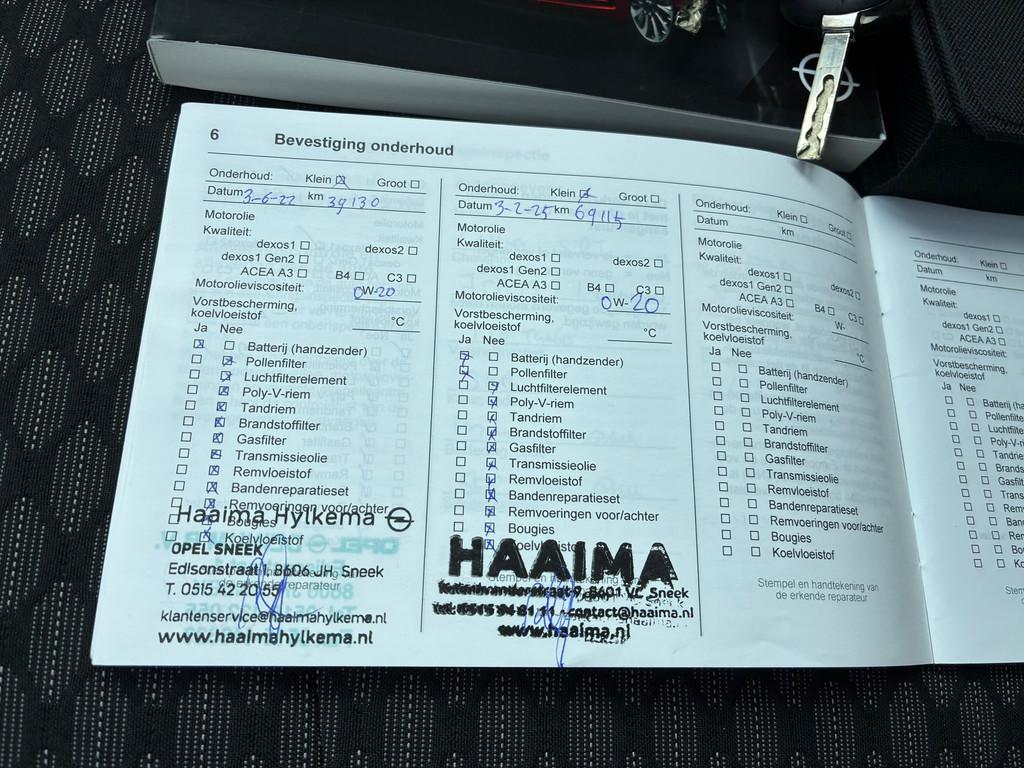 6 Bevestiging onderhoud
Onderhoud: Klein Groot
Datum 3-6-22 km 39130
Motorolie
Kwaliteit:
dexos1 dexos2
dexos1 Gen2
ACEA A3 B4 C3
Motorolieviscositeit: 0W-20
Vorstbescherming,
koelvloeistof °C
Ja Nee
Batterij (handzender)
Pollenfilter
Luchtfilterelement
Poly-V-riem
Tandriem
Brandstoffilter
Gasfilter
Transmissieolie
Remvloeistof
Bandenreparatieset
Remvoeringen voor/achter
Bougies
Koelvloeistof
Haaima Hylkema
OPEL SNEEK
Edisonstraat 1, 8606 JH, Sneek
T. 0515 42 20 55
klantenservice@haaimahylkema.nl
www.haaimahylkema.nl
Onderhoud: Klein Groot
Datum 3-2-25 km 69115
Motorolie
Kwaliteit:
dexos1 dexos2
dexos1 Gen2
ACEA A3 B4 C3
Motorolieviscositeit: 0W-20
Vorstbescherming,
koelvloeistof °C
Ja Nee
Batterij (handzender)
Pollenfilter
Luchtfilterelement
Poly-V-riem
Tandriem
Brandstoffilter
Gasfilter
Transmissieolie
Remvloeistof
Bandenreparatieset
Remvoeringen voor/achter
Bougies
Koelvloeistof
HAAIMA
8601 VC Sneek
contact@haaima.nl
www.haaima.nl
Onderhoud: Klein Groot
Datum km
Motorolie
Kwaliteit:
dexos1 dexos2
dexos1 Gen2
ACEA A3 B4 C3
Motorolieviscositeit: W-
Vorstbescherming,
koelvloeistof °C
Ja Nee
Batterij (handzender)
Pollenfilter
Luchtfilterelement
Poly-V-riem
Tandriem
Brandstoffilter
Gasfilter
Transmissieolie
Remvloeistof
Bandenreparatieset
Remvoeringen voor/achter
Bougies
Koelvloeistof
Stempel en handtekening van
de erkende reparateur
Onderhoud: Klein
Datum km
Motorolie
Kwaliteit:
dexos1
dexos1 Gen2
ACEA A3
Motorolieviscositeit:
Vorstbescherming,
koelvloeistof
Ja Nee